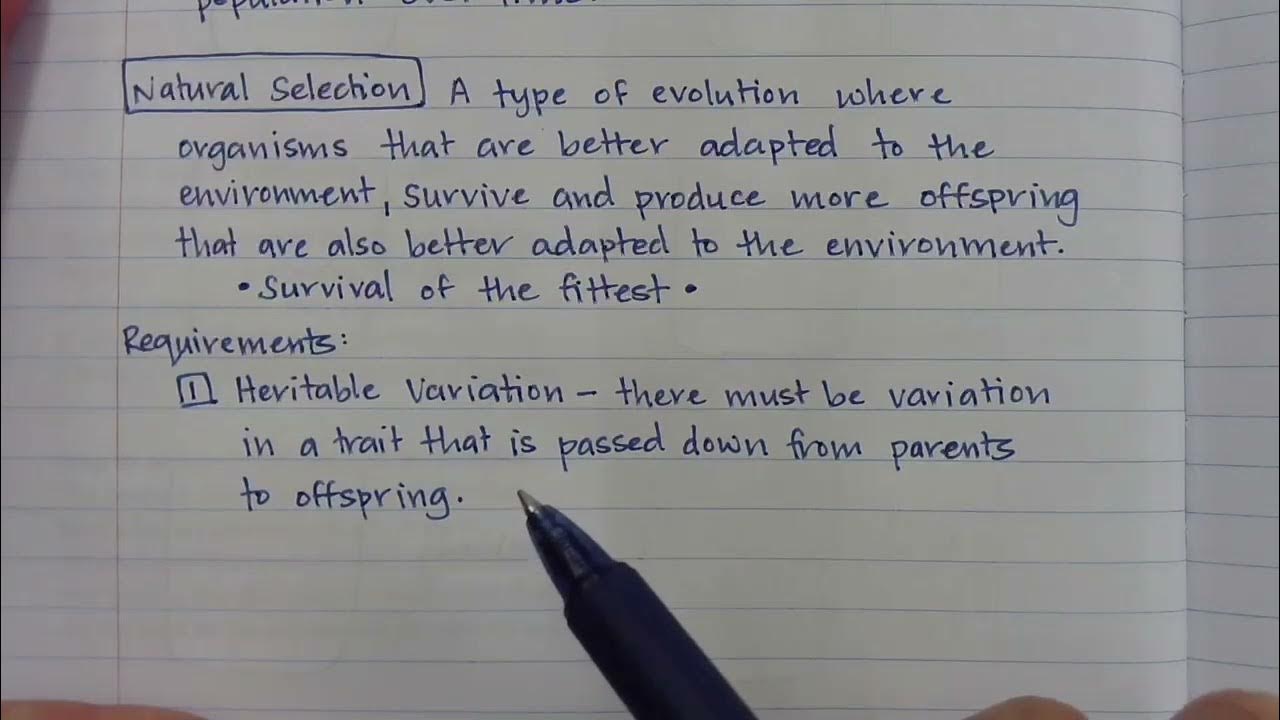 Natural Selection A type of evolution where
organisms that are better adapted to the
environment, survive and produce more offspring
that are also better adapted to the environment.
• Survival of the fittest •
Requirements:
1 Heritable Variation – there must be variation
in a trait that is passed down from parents
to offspring.